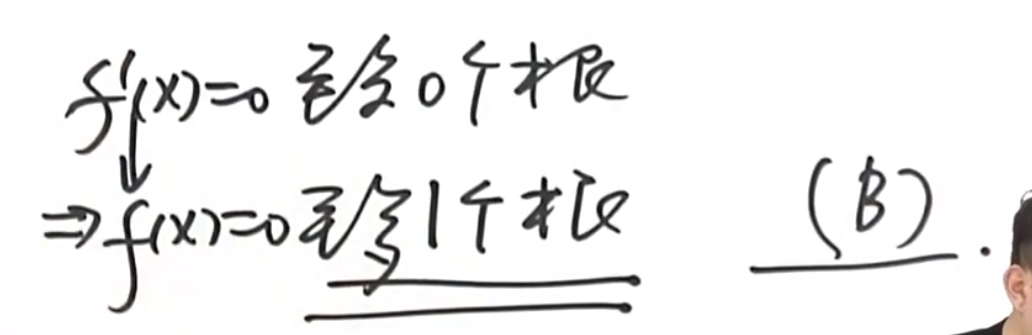 f'(x)=0 至多0个根
⇒f(x)=0至多1个根 (B).